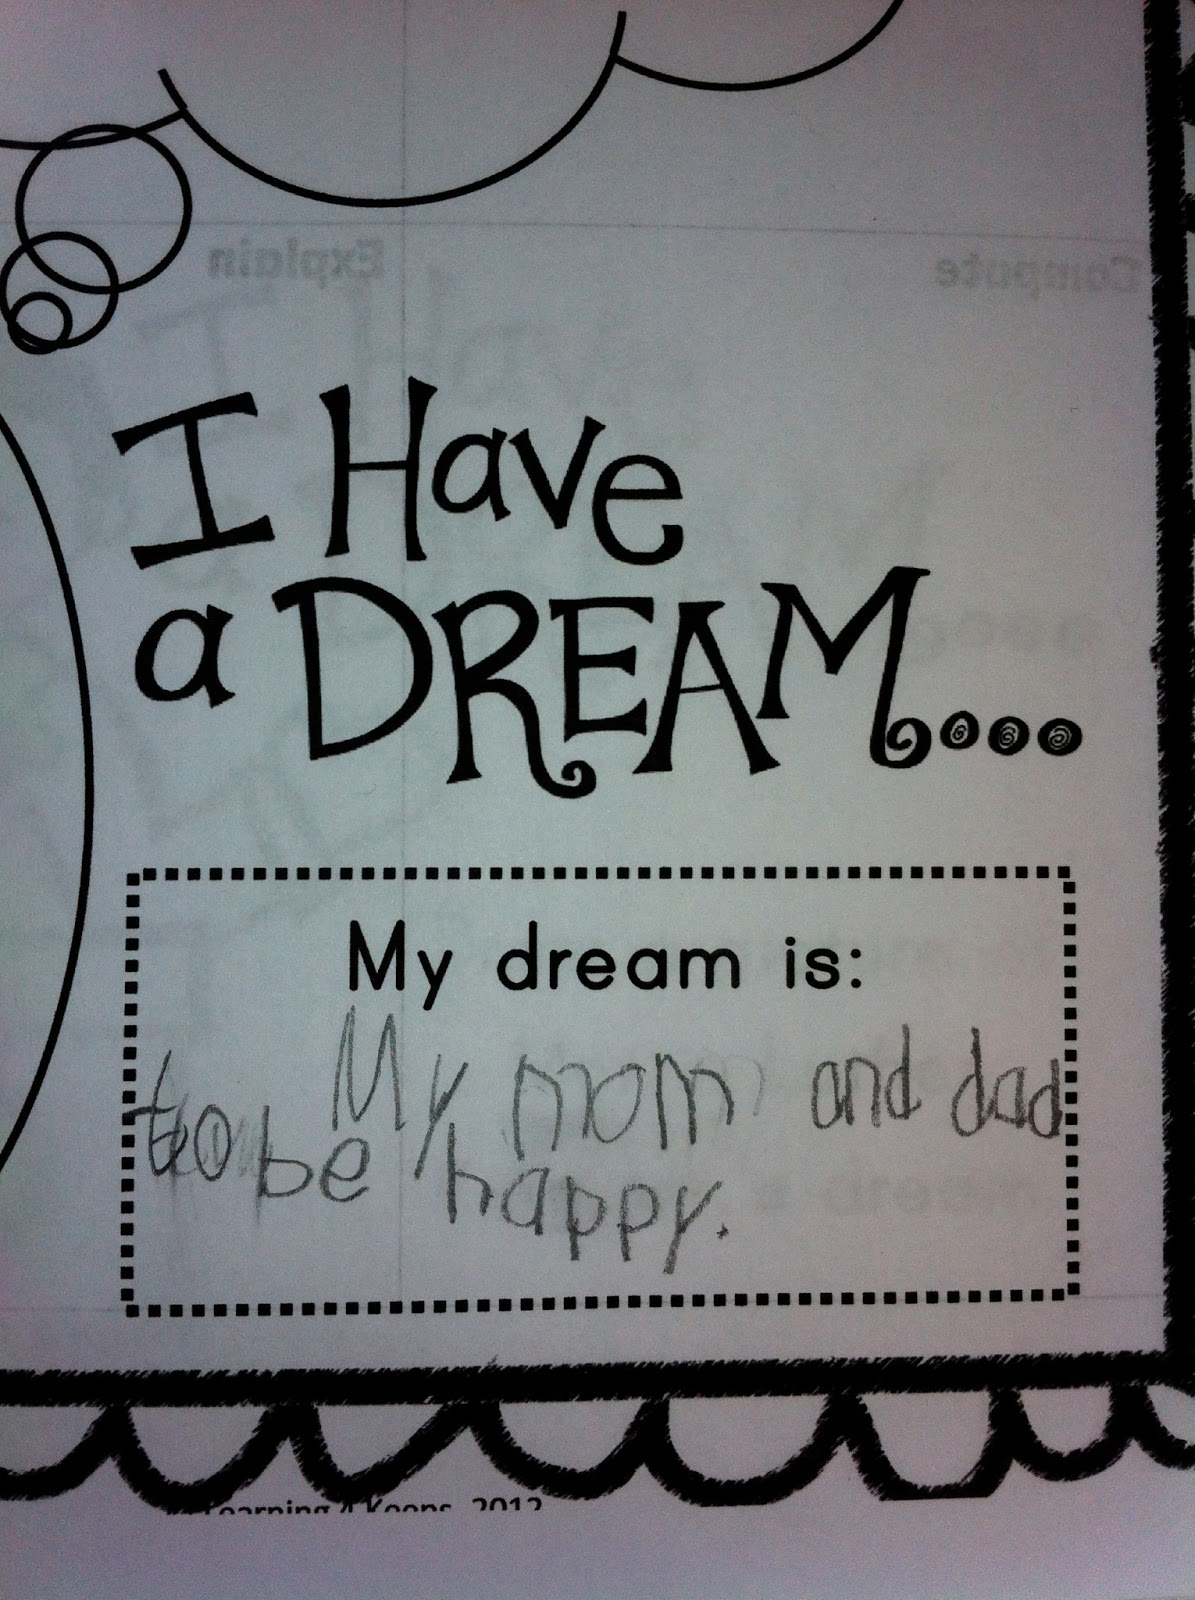 Explain Compute
I Have
a DREAM....
My dream is:
My mom and dad
to be happy.
Learning 4 Keeps, 2012